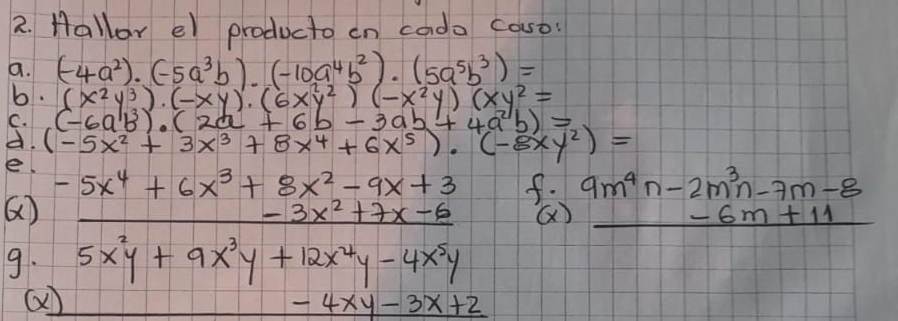 2. Hallar el producto en cada caso:
a. (-4a²).(-5a³b).(-10a⁴b²).(5a⁵b³)=
b. (x²y³).(-xy).(6x²y²)(-x²y)(xy²=
c. (-6a¹b³).(2a + 6b - 3ab + 4a²b)=
d. (-5x² + 3x³ + 8x⁴ + 6x⁵).(-8xy²)=
e.
-5x⁴ + 6x³ + 8x² - 9x + 3 f. 9m⁴n - 2m³n - 7m - 8
(x) -3x² + 7x - 6 (x) -6m + 11
g. 5x²y + 9x³y + 12x⁴y - 4x⁵y
(x) -4xy - 3x + 2